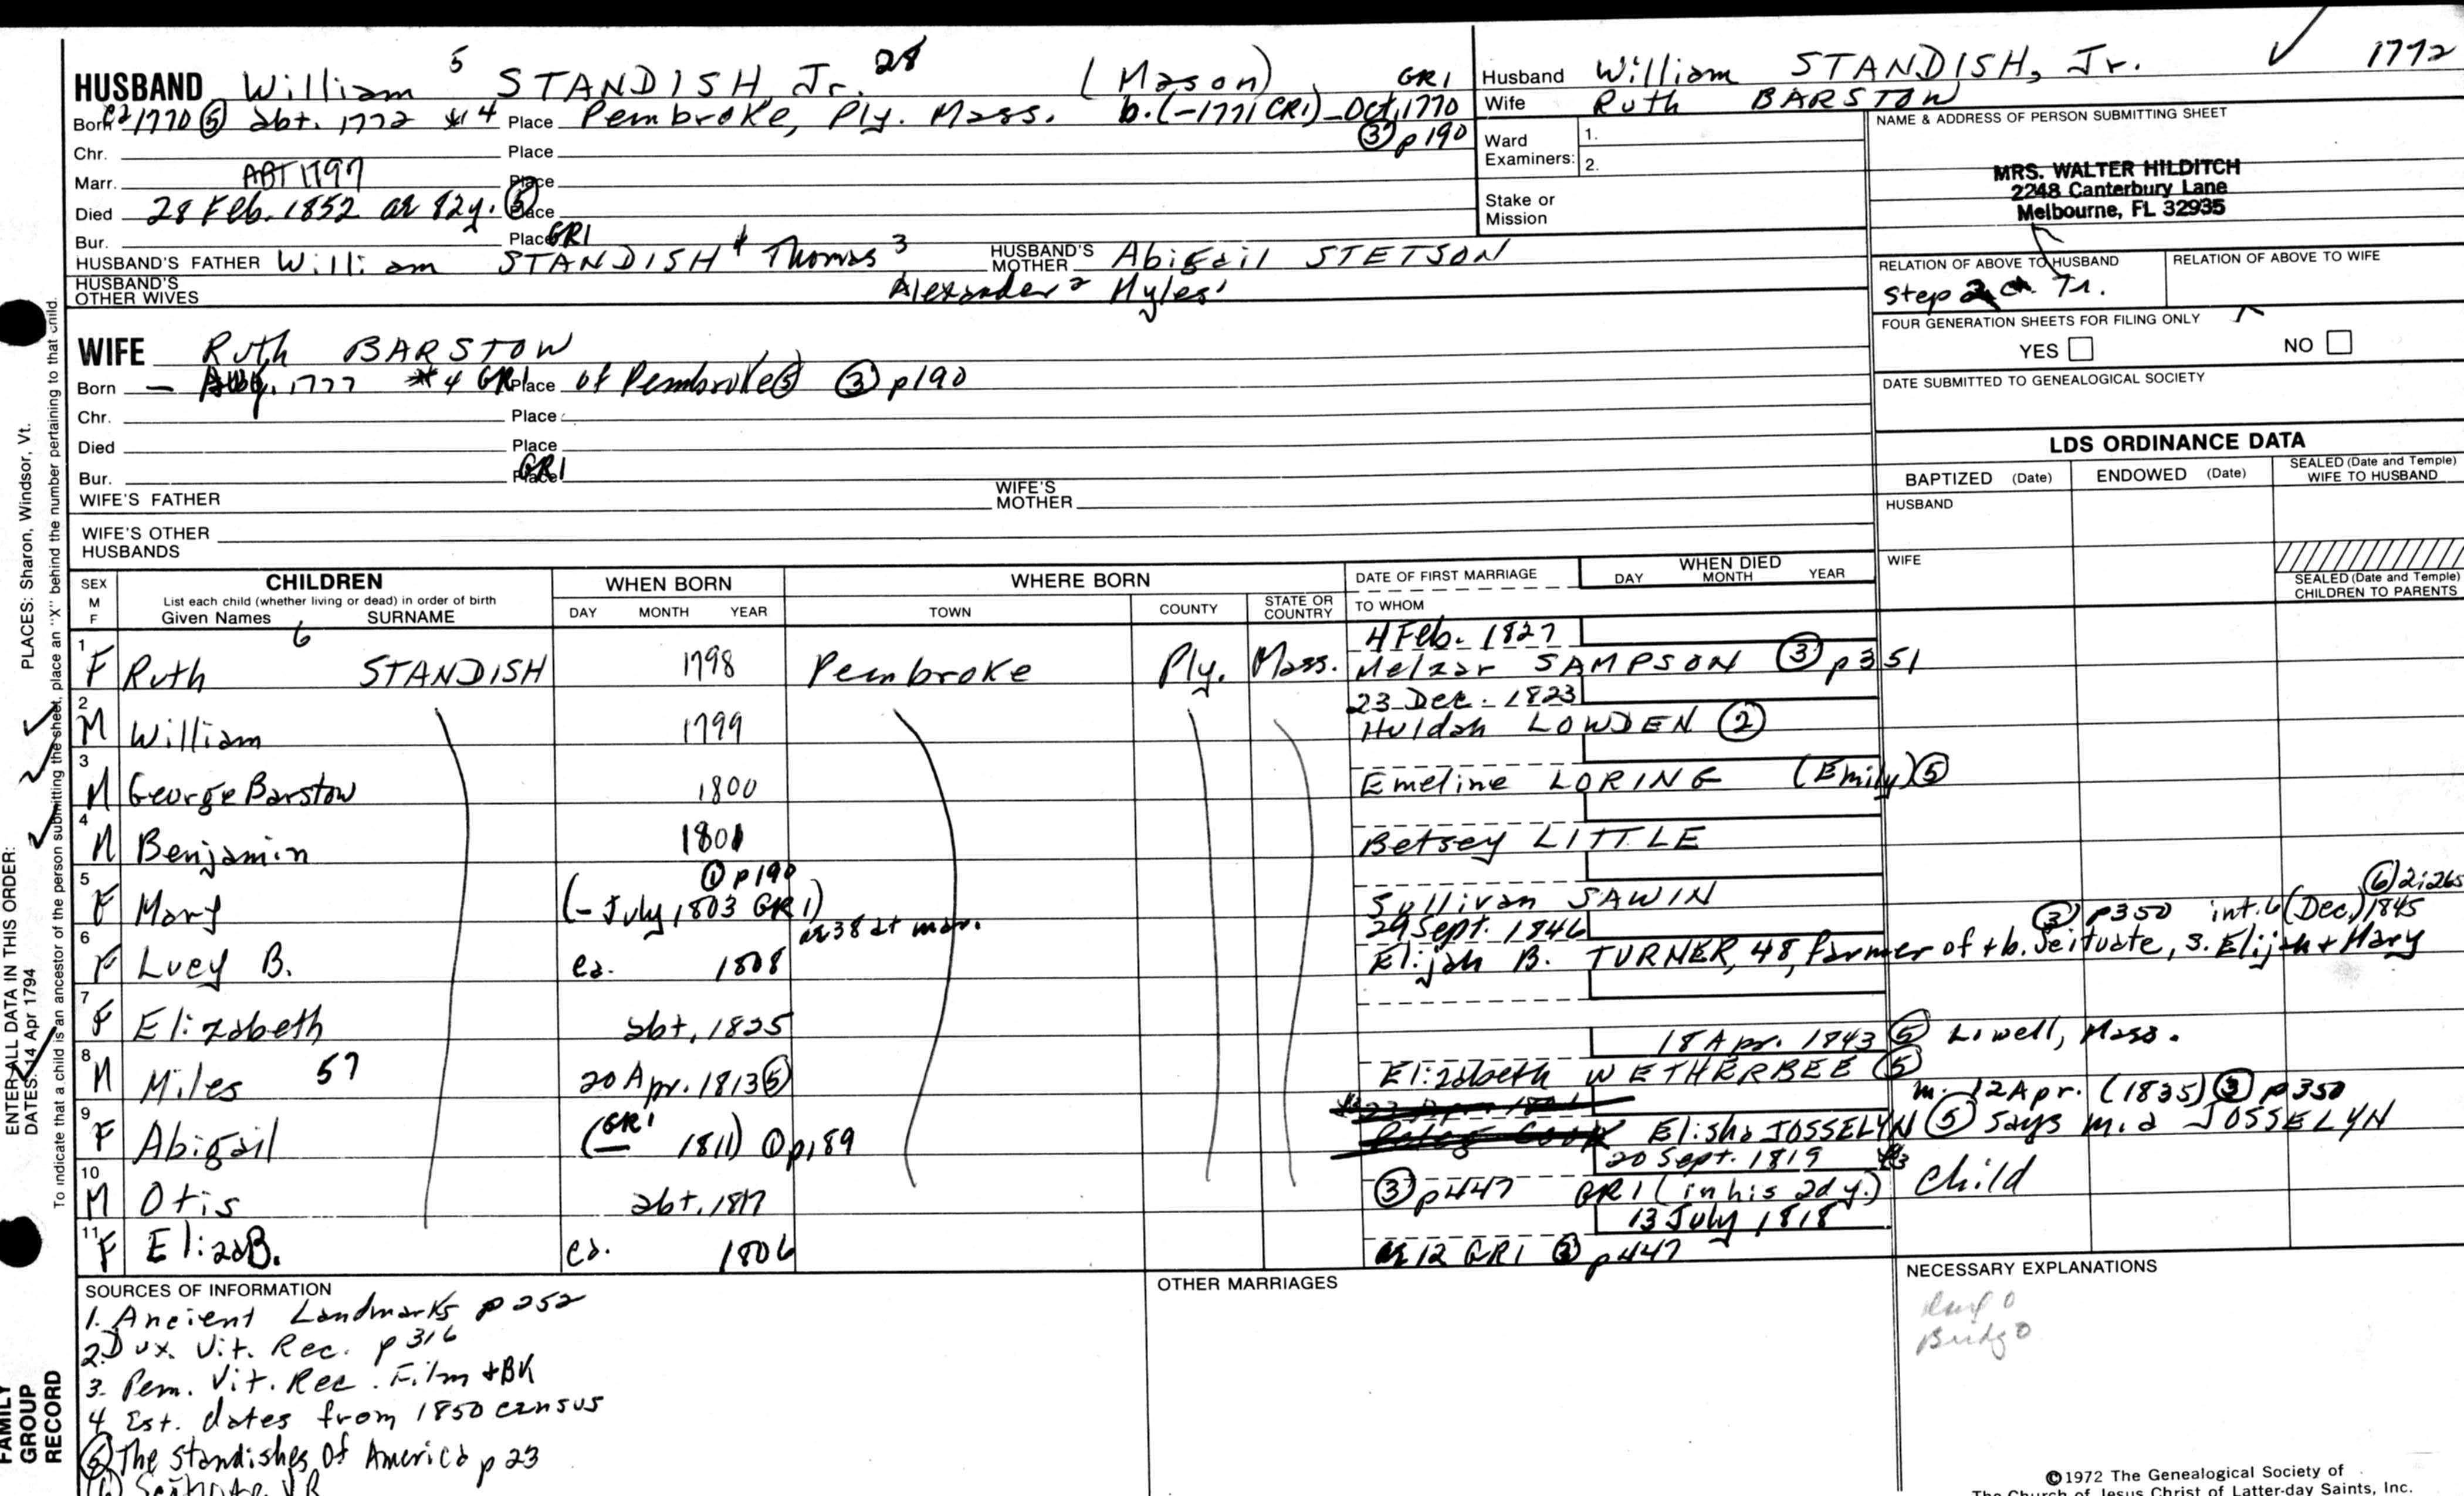 HUSBAND William 5 STANDISH, Jr. (Mason)
Born 1770 ⑤ abt. 1772 *4 Place Pembroke, Ply. Mass. b. (-1771 CR1) - Oct, 1770 GR1 ③ p190
Chr. Place
Marr. ABT 1797 Place
Died 28 Feb. 1852 ae 82y. ⑤ Place
Bur. Place GR1
HUSBAND'S FATHER William STANDISH 4 Thomas 3 HUSBAND'S MOTHER Abigail STETSON
HUSBAND'S OTHER WIVES Alexander 2 Myles 1
WIFE Ruth BARSTOW
Born - 1777 *4 GR1 Place of Pembroke ⑤ ③ p190
Chr. Place
Died Place
Bur. Place GR1
WIFE'S FATHER WIFE'S MOTHER
WIFE'S OTHER HUSBANDS
Husband William STANDISH, Jr. ✓ 1772
Wife Ruth BARSTOW
Ward 1.
Examiners: 2.
Stake or
Mission
NAME & ADDRESS OF PERSON SUBMITTING SHEET
MRS. WALTER HILDITCH
2248 Canterbury Lane
Melbourne, FL 32935
RELATION OF ABOVE TO HUSBAND RELATION OF ABOVE TO WIFE
Step
FOUR GENERATION SHEETS FOR FILING ONLY
YES NO
DATE SUBMITTED TO GENEALOGICAL SOCIETY
LDS ORDINANCE DATA
BAPTIZED (Date) ENDOWED (Date) SEALED (Date and Temple) WIFE TO HUSBAND
HUSBAND
WIFE
SEALED (Date and Temple) CHILDREN TO PARENTS
SEX M F
CHILDREN
List each child (whether living or dead) in order of birth
Given Names SURNAME
WHEN BORN
DAY MONTH YEAR
WHERE BORN
TOWN COUNTY STATE OR COUNTRY
DATE OF FIRST MARRIAGE
TO WHOM
WHEN DIED
DAY MONTH YEAR
4 Feb. 1827
1 F Ruth 6 STANDISH 1798 Pembroke Ply. Mass. Melzar SAMPSON ③ p351
23 Dec. 1823
2 M William 1799 Huldah LOWDEN ②
3 M George Barstow 1800 Emeline LORING (Emily) ⑤
4 M Benjamin 1801 Betsey LITTLE
① p190
5 F Mary (- July, 1803 GR1) Sullivan SAWIN
⑥ 2:265
ae 38 at mar. 29 Sept. 1846 ③ p350 int. 6 (Dec.) 1845
6 F Lucy B. ca. 1808 Elijah B. TURNER, 48, farmer of + b. Scituate, s. Elijah + Mary
7 F Elizabeth abt. 1825
18 Apr. 1843 ⑤ Lowell, Mass.
8 M Miles 57 20 Apr. 1813 ⑤ Elizabeth WETHERBEE ⑤
m. 12 Apr. (1835) ③ p350
9 F Abigail (GR1 - 1811) ① p189 Elisha JOSSELYN ⑤ says m. a JOSSELYN
20 Sept. 1819 *3
10 M Otis abt. 1817 ③ p447 GR1 (in his 2d y.) child
13 July 1818
11 F Eliza B. ca. 1806 ae 12 GR1 ③ p447
SOURCES OF INFORMATION
1. Ancient Landmarks p 252
2. Dux. Vit. Rec. p 316
3. Pem. Vit. Rec. Film + BK
4 Est. dates from 1850 census
⑤ The Standishes of America p 23
OTHER MARRIAGES
NECESSARY EXPLANATIONS
©1972 The Genealogical Society of
The Church of Jesus Christ of Latter-day Saints, Inc.
ENTER ALL DATA IN THIS ORDER:
DATES: 14 Apr 1794 PLACES: Sharon, Windsor, Vt.
To indicate that a child is an ancestor of the person submitting the sheet, place an "X" behind the number pertaining to that child.
FAMILY
GROUP
RECORD